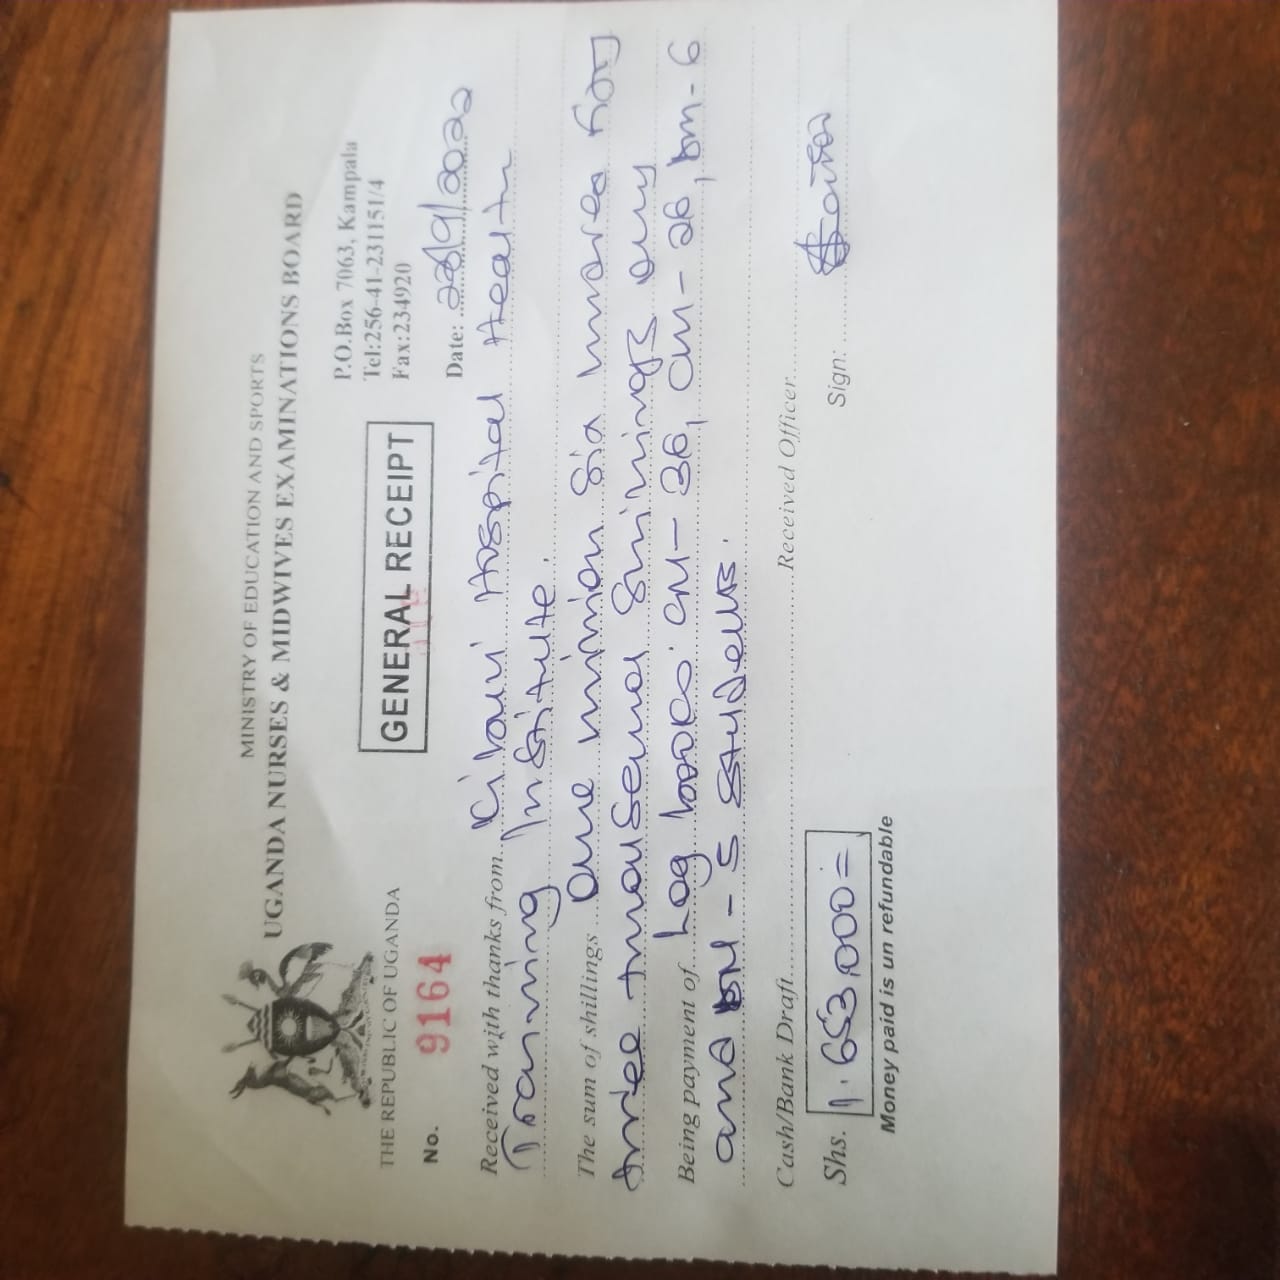 MINISTRY OF EDUCATION AND SPORTS
UGANDA NURSES & MIDWIVES EXAMINATIONS BOARD
P.O.Box 7063, Kampala
Tel:256-41-231151/4
Fax:234920
THE REPUBLIC OF UGANDA
GENERAL RECEIPT
No. 9164
Date: 28/9/2022
Received with thanks from Kibuli Hospital Health
Training Institute.
The sum of shillings One million Six hundred fifty
three thousand shillings only
Being payment of Log books. CN-36, CM-26, DM-6
and DN-5 students.
Cash/Bank Draft Received Officer
Shs. 1.653,000= Sign:
Money paid is un refundable